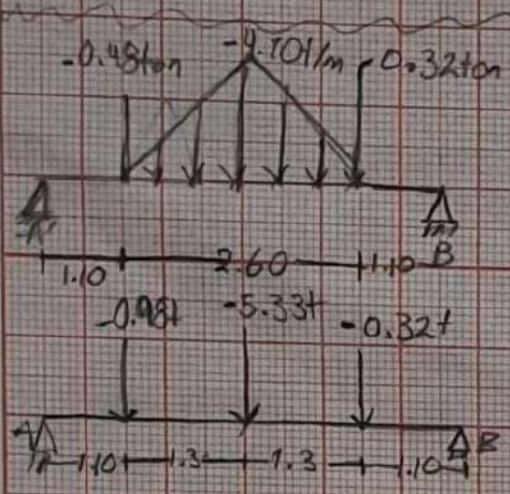 -0.98ton -4.10t/m 0.32ton
B
1.10 2.60 1.10
-0.98t -5.33t -0.32t
A B
1.10 1.3 1.3 1.10